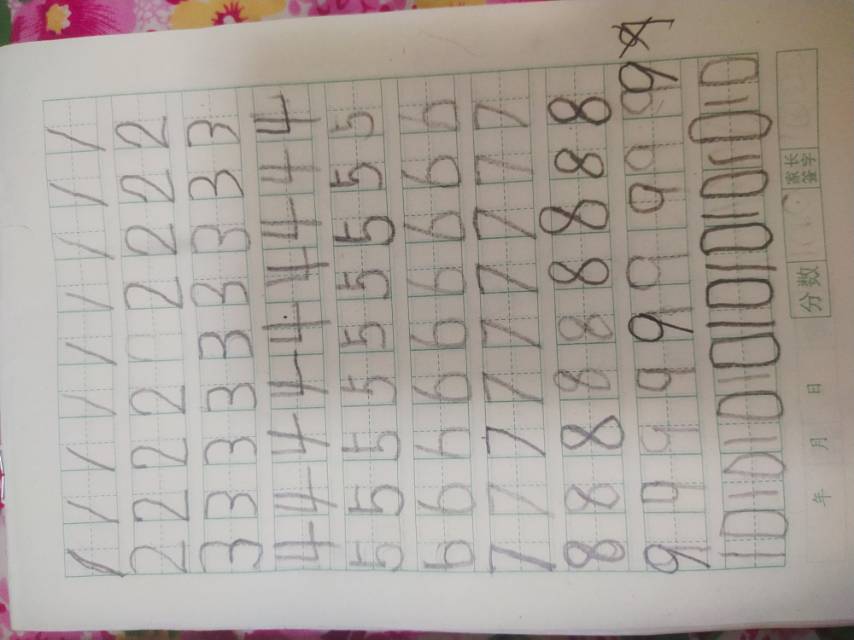 1 1 1 1 1 1 1 1 1
2 2 2 2 2 2 2 2
3 3 3 3 3 3 3 3 3
4 4 4 4 4 4 4 4 4
5 5 5 5 5 5 5 5 5
6 6 6 6 6 6 6 6 6
7 7 7 7 7 7 7 7 7
8 8 8 8 8 8 8 8 8
9 9 9 9 9 9 9 9 9 9
10 10 10 10 10 10 10 10 10
年 月 日 分数 家长签字